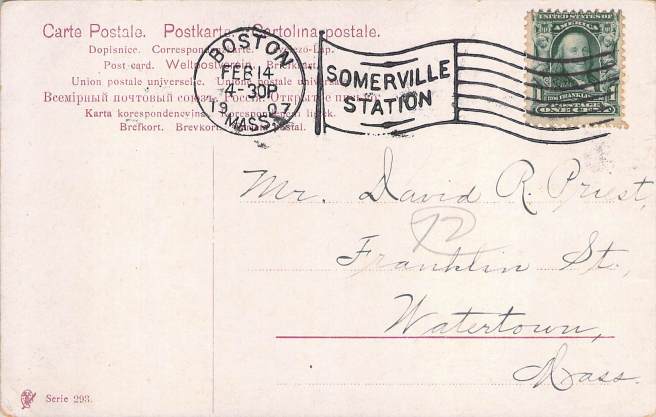 Carte Postale. Postkarte. Cartolina postale.
Dopisnice. Correspondenzkarte. Levelező-Lap.
Post card. Weltpostverein. Briefkaart.
Union postale universelle. Unione postale universale.
Всемірный почтовый союзъ. Россія. Открытое письмо.
Karta korespondencyjna. Korespondenční lístek.
Brefkort. Brevkort. postal.
BOSTON
FEB 14
4-30P
19 07
MASS.
SOMERVILLE
STATION
UNITED STATES OF
AMERICA
FRANKLIN
POSTAGE
ONE CENT
Mr. David R. Priest,
72
Franklin St.,
Watertown,
Mass.
Serie 293.